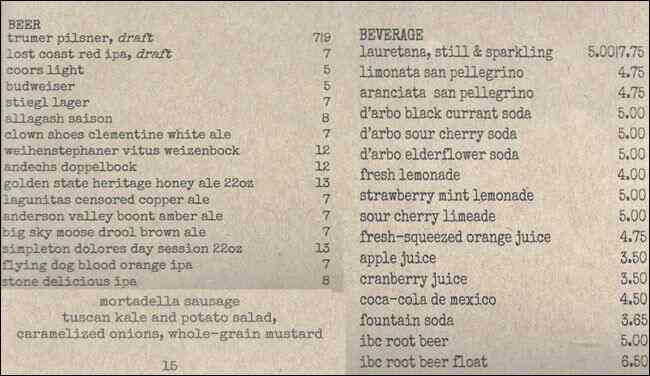 BEER
trumer pilsner, draft 7|9
lost coast red ipa, draft 7
coors light 5
budweiser 5
stiegl lager 7
allagash saison 8
clown shoes clementine white ale 7
weihenstephaner vitus weizenbock 12
andechs doppelbock 12
golden state heritage honey ale 22oz 13
lagunitas censored copper ale 7
anderson valley boont amber ale 7
big sky moose drool brown ale 7
simpleton dolores day session 22oz 13
flying dog blood orange ipa 7
stone delicious ipa 8
mortadella sausage
tuscan kale and potato salad,
caramelized onions, whole-grain mustard
15
BEVERAGE
lauretana, still & sparkling 5.00|7.75
limonata san pellegrino 4.75
aranciata san pellegrino 4.75
d'arbo black currant soda 5.00
d'arbo sour cherry soda 5.00
d'arbo elderflower soda 5.00
fresh lemonade 4.00
strawberry mint lemonade 5.00
sour cherry limeade 5.00
fresh-squeezed orange juice 4.75
apple juice 3.50
cranberry juice 3.50
coca-cola de mexico 4.50
fountain soda 3.65
ibc root beer 5.00
ibc root beer float 6.50